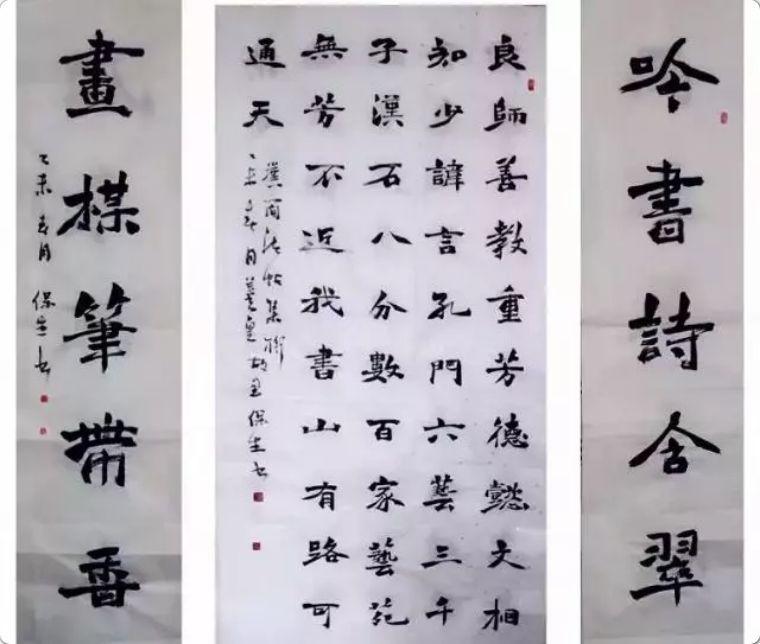 吟書詩含翠
良師善教重芳德懿文相
知少諱言孔門六藝三千
子漢石八分數百家藝苑
無芳不近我書山有路可
通天
漢簡法帖集聯
月 故里保生书
畫楳筆帶香
乙未春月 保生书